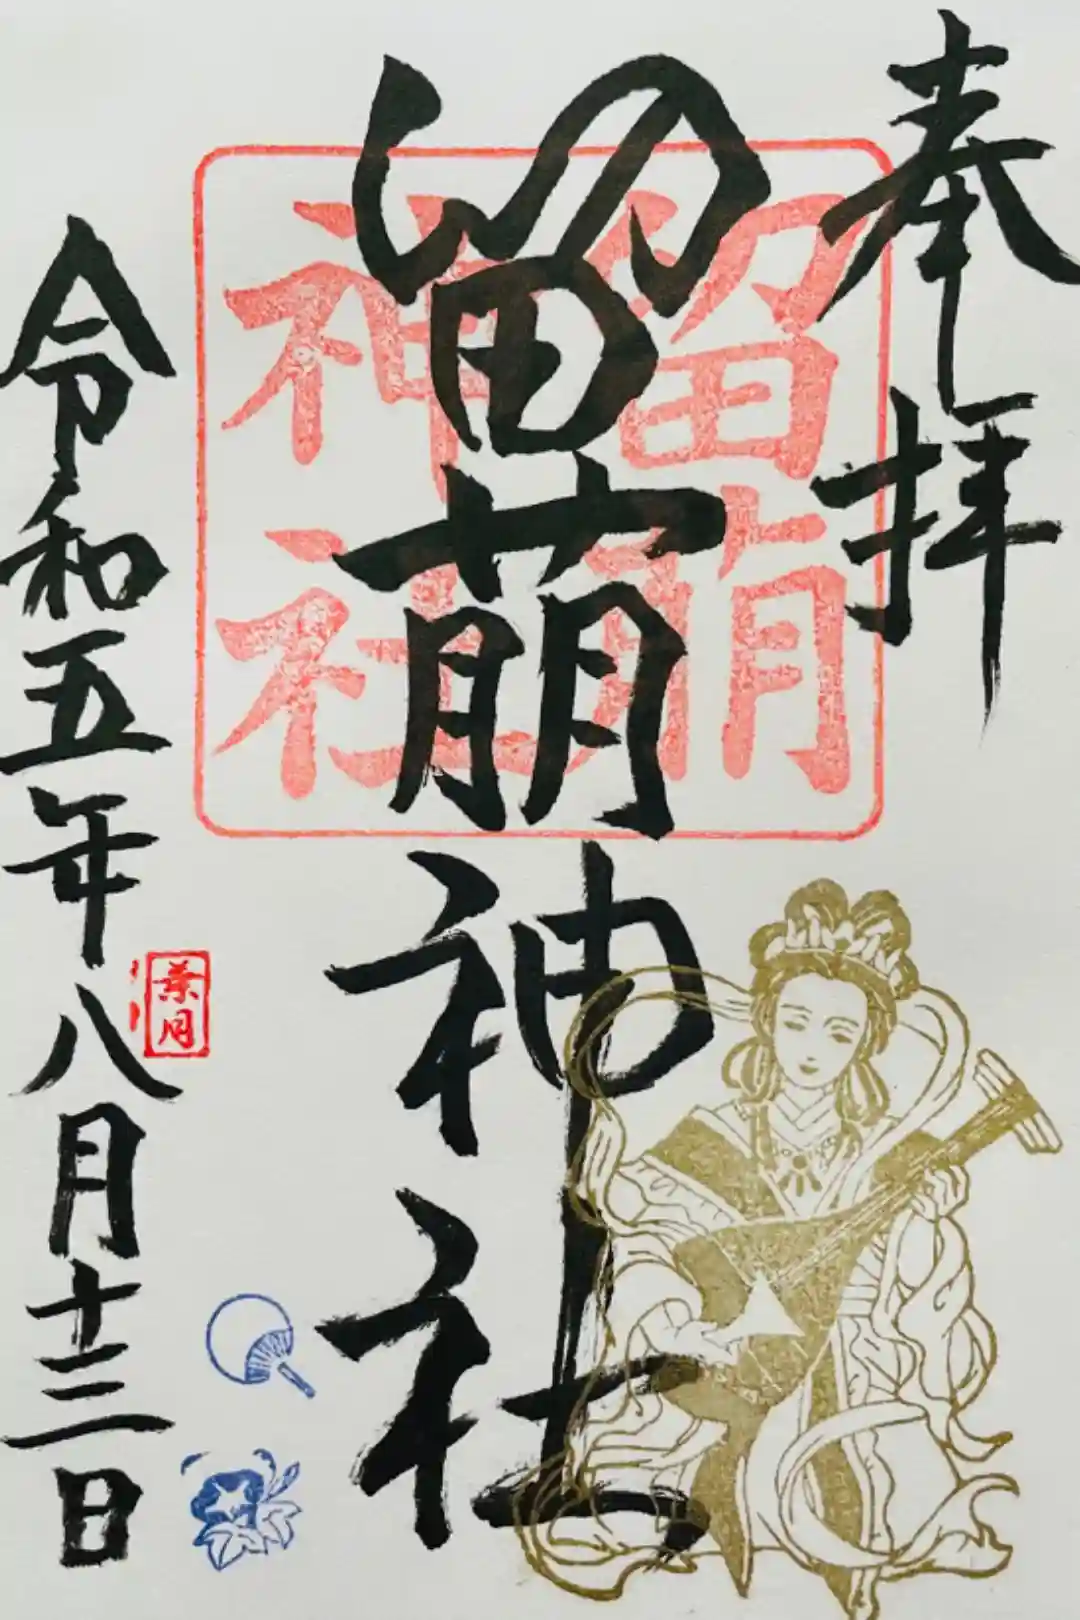 奉拝
留萌神社
留萌
神社
令和五年八月十三日
葉月